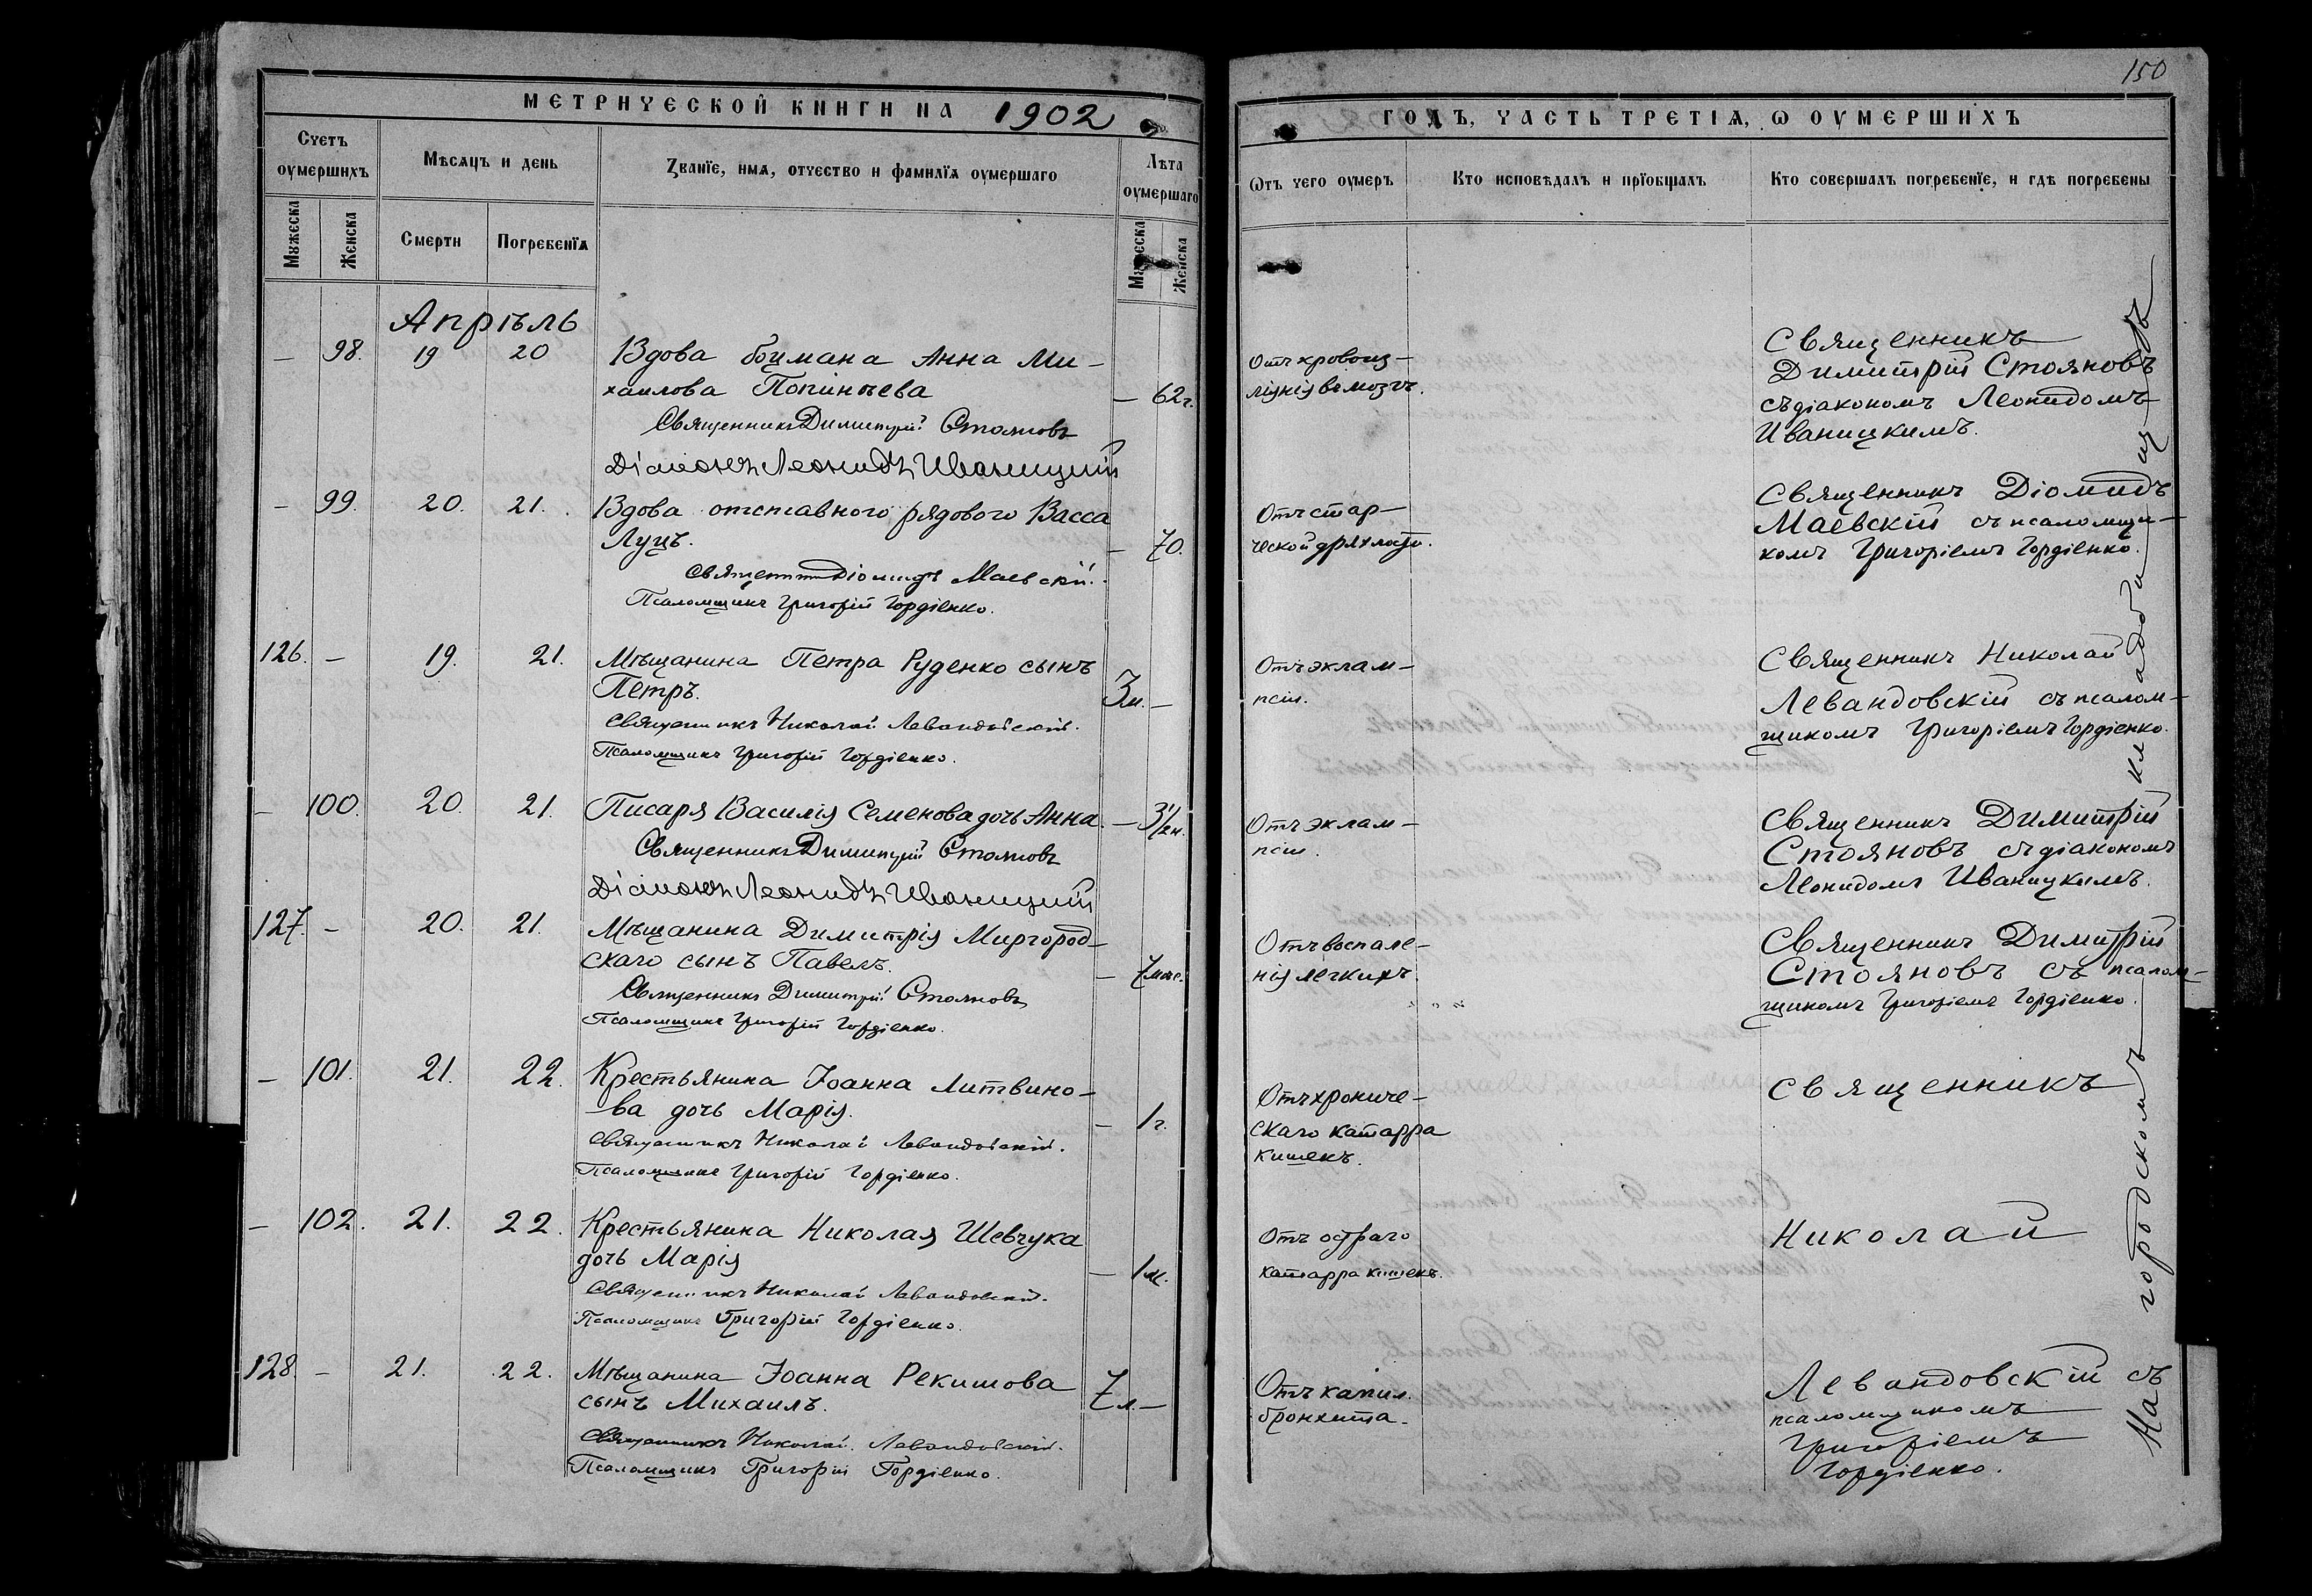 150
МЕТРИЧЕСКОЙ КНИГИ НА 1902
ГОДЪ, ЧАСТЬ ТРЕТІѦ, Ѡ ОУМЕРШИХЪ
Счетъ оумершихъ
Мѣсѧцъ и день
Званїе, имѧ, отчество и фамилїѧ оумершаго
Лѣта оумершаго
Ѿтъ чего оумеръ
Кто исповѣдалъ и прїобщалъ
Кто совершалъ погребенїе, и гдѣ погребены
Мужеска
Женска
Смерти
Погребенїѧ
Мужеска
Женска
Апрѣль
— 98. 19 20 Вдова боцмана Анна Ми-
хаилова — 62 г.
Священникъ Димитрій Стояновъ
Діаконъ Леонидъ Иваницкій
Отъ кровоиз-
ліянія въ мозгъ.
Священникъ
Димитрій Стояновъ
съ діакономъ Леонидомъ
Иваницкимъ.
— 99. 20. 21. Вдова отставного рядового Васса
Луцъ. — 70.
Священникъ Діомидъ Маевскій.
Псаломщикъ Григорій Гордіенко.
Отъ стар-
ческой дряхлости.
Священникъ Діомидъ
Маевскій съ псаломщи-
комъ Григоріемъ Гордіенко.
126. — 19. 21. Мѣщанина Петра Руденко сынъ
Петръ. 3 н. —
Священникъ Николай Левандовскій.
Псаломщикъ Григорій Гордіенко.
Отъ эклам-
псіи.
Священникъ Николай
Левандовскій съ псалом-
щикомъ Григоріемъ Гордіенко.
— 100. 20. 21. Писаря Василія Семенова дочь Анна. — 3½ н.
Священникъ Димитрій Стояновъ
Діаконъ Леонидъ Иваницкій
Отъ эклам-
псіи.
Священникъ Димитрій
Стояновъ съ діакономъ
Леонидомъ Иваницкимъ.
127. — 20. 21. Мѣщанина Димитрія Миргород-
скаго сынъ Павелъ. — 7 мѣс.
Священникъ Димитрій Стояновъ
Псаломщикъ Григорій Гордіенко.
Отъ воспале-
нія легкихъ.
Священникъ Димитрій
Стояновъ съ псалом-
щикомъ Григоріемъ Гордіенко.
— 101. 21. 22. Крестьянина Іоанна Литвино-
ва дочь Марія. — 1 г.
Священникъ Николай Левандовскій.
Псаломщикъ Григорій Гордіенко.
Отъ хрониче-
скаго катарра
кишекъ.
Священникъ
— 102. 21. 22. Крестьянина Николая Шевчука
дочь Марія — 1 м.
Священникъ Николай Левандовскій.
Псаломщикъ Григорій Гордіенко.
Отъ остраго
катарра кишекъ.
Николай
128. — 21. 22. Мѣщанина Іоанна Рекишова
сынъ Михаилъ. 7 л. —
Священникъ Николай Левандовскій.
Псаломщикъ Григорій Гордіенко.
Отъ капил.
бронхита.
Левандовскій съ
псаломщикомъ
Григоріемъ
Гордіенко.
На городскомъ кладбищѣ